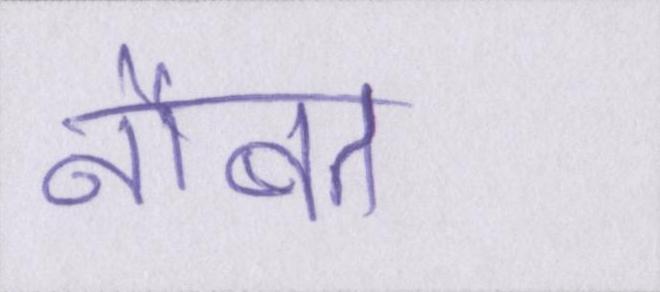 नौबत